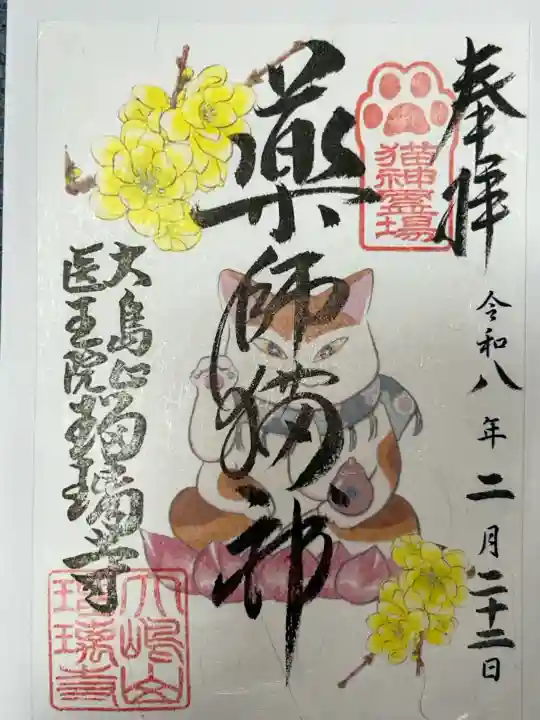 奉拝
令和八年二月二十二日
猫神霊場
薬師猫神
大島山
医王院瑠璃寺
大嶋山
瑠璃寺